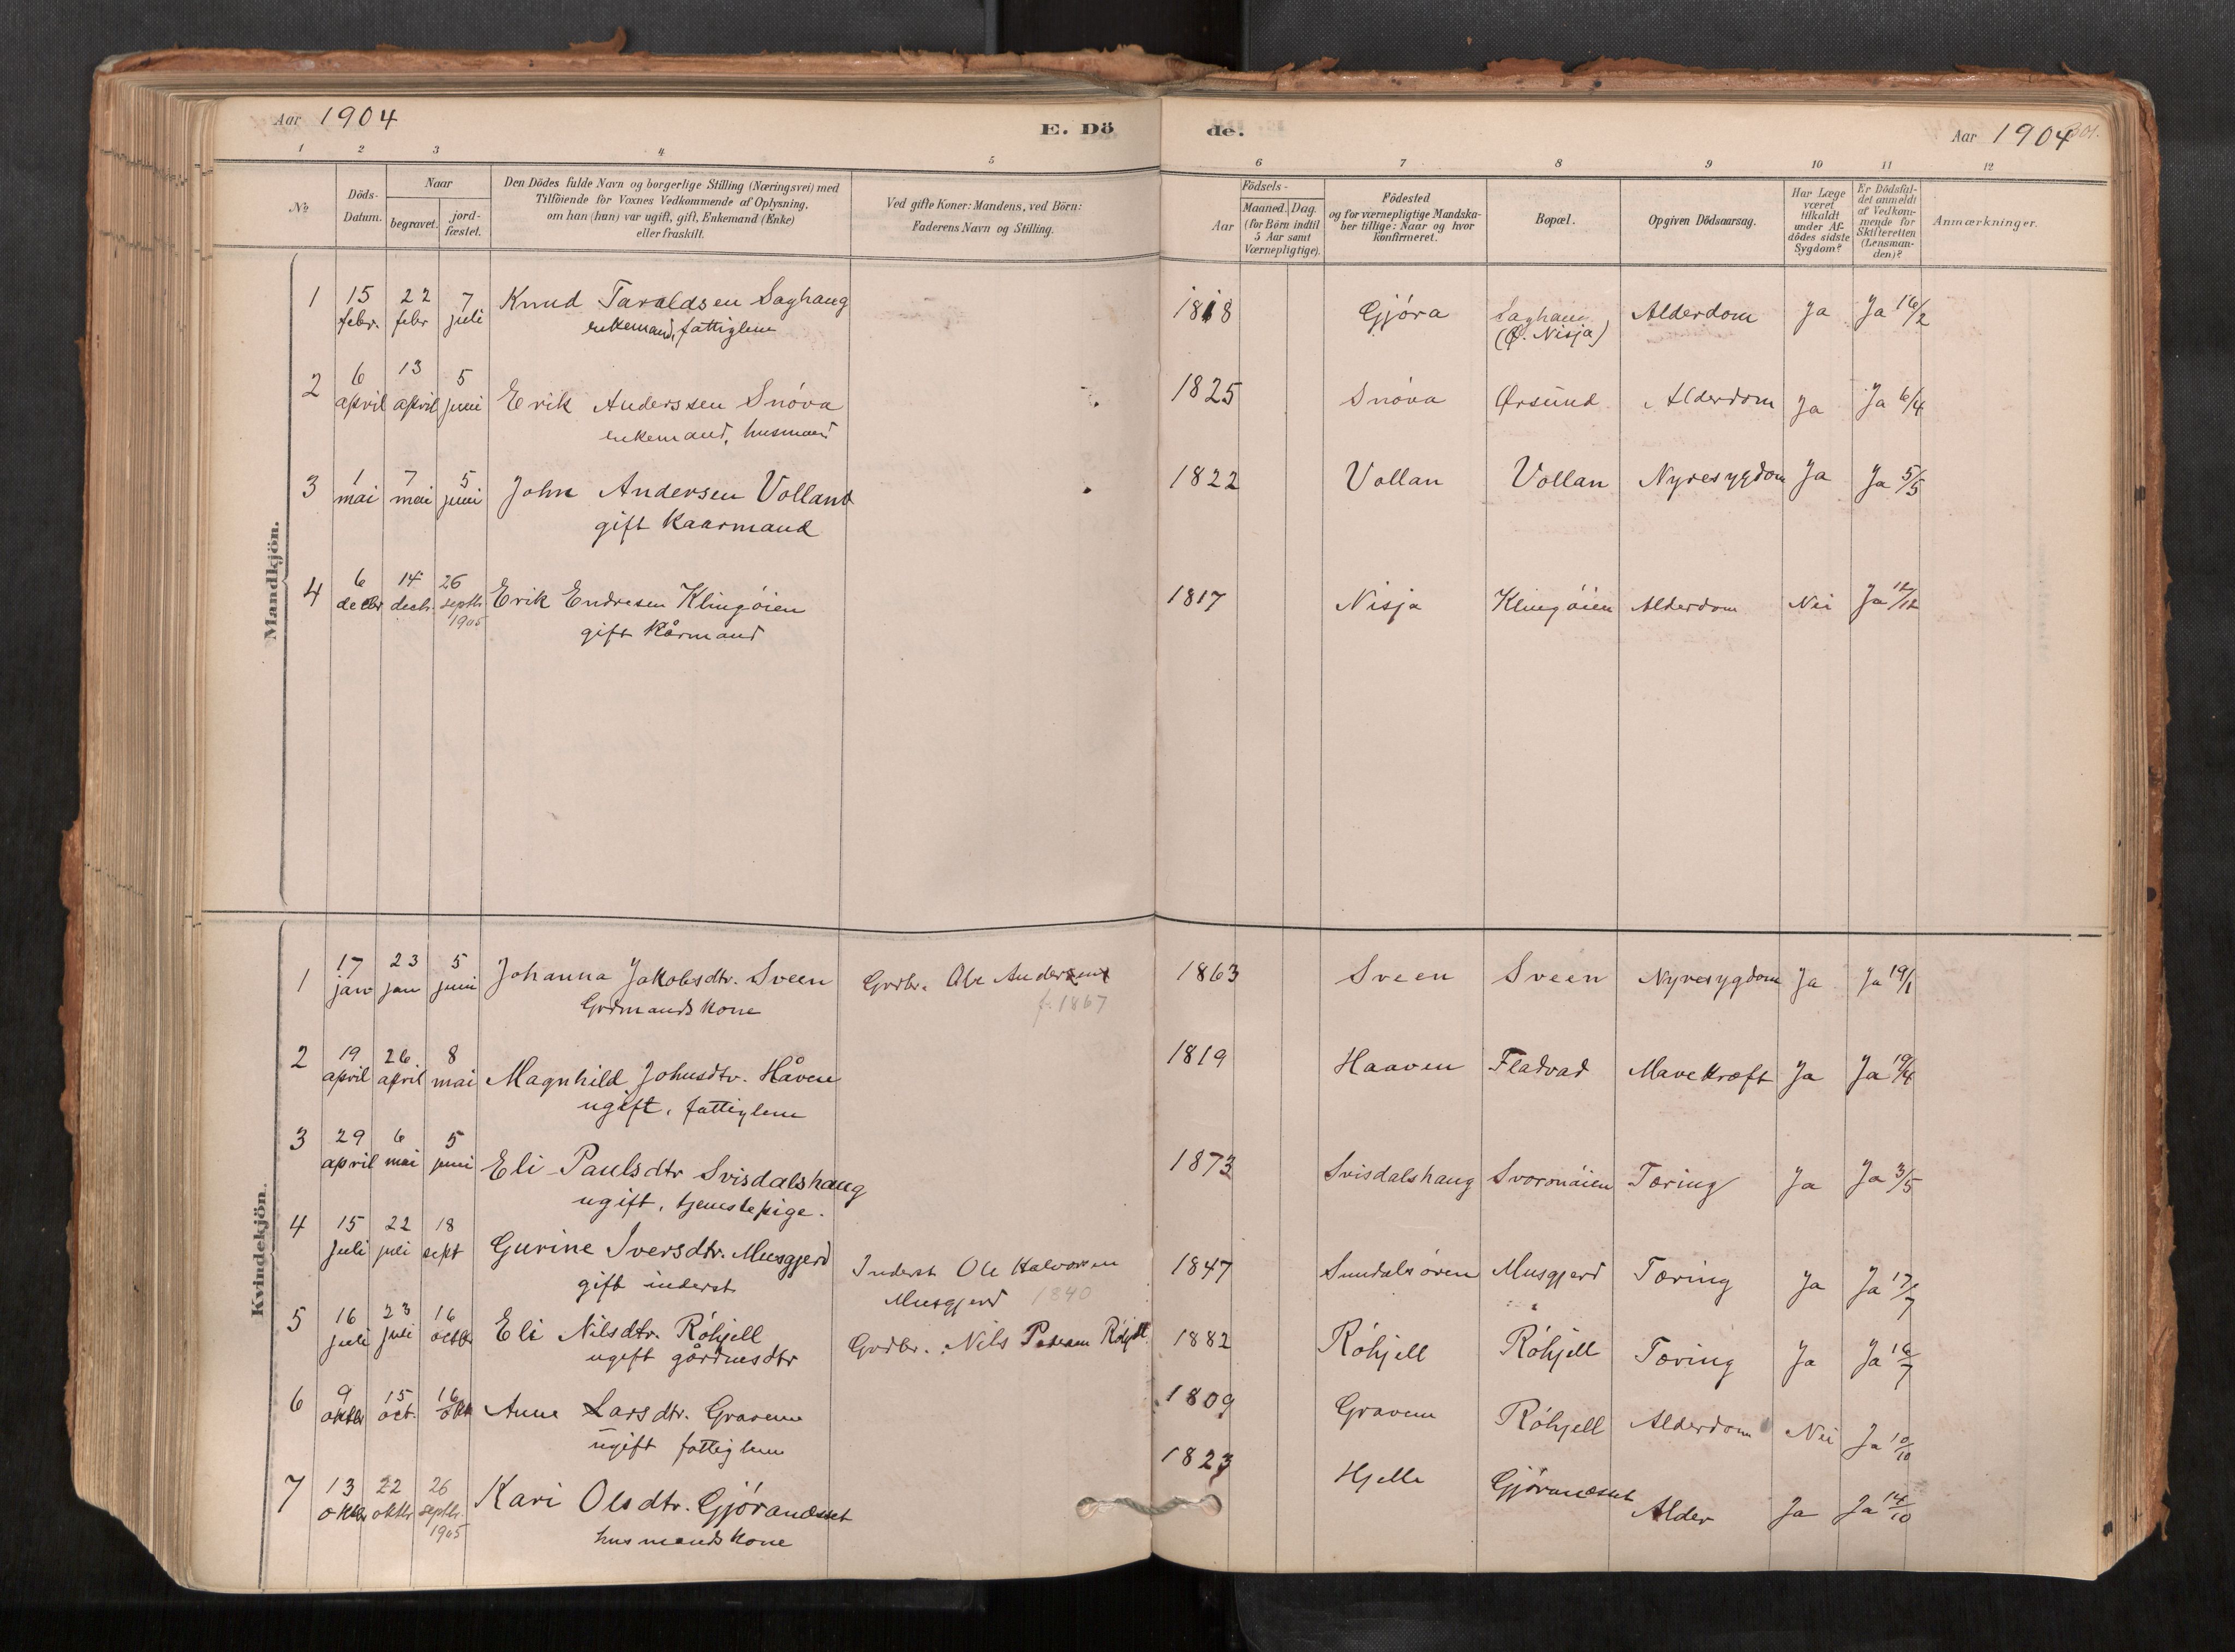 Aar 1904
E. Döde.
Aar 1904
301.
1 2 3 4 5 6 7 8 9 10 11 12
No
Döds-Datum.
Naar
begravet.
jord-fæstet.
Den Dödes fulde Navn og borgerlige Stilling (Næringsvei) med
Tilföiende for Voxnes Vedkommende af Oplysning,
om han (hun) var ugift, gift, Enkemand (Enke)
eller fraskilt.
Ved gifte Koner: Mandens, ved Börn:
Faderens Navn og Stilling.
Födsels-
Aar
Maaned. Dag.
(for Börn indtil
5 Aar samt
Værnepligtige).
Födested
og for værnepligtige Mandska-
ber tillige: Naar og hvor
konfirmeret.
Bopæl.
Opgiven Dödsaarsag.
Har Læge
været
tilkaldt
under Af-
dödes sidste
Sygdom?
Er Dödsfal-
det anmeldt
af Vedkom-
mende for
Skifteretten
(Lensman-
den)?
Anmærkninger.
Mandkjön.
1 15 febr. 22 febr 7 juli Knud Taraldsen Saghaug 1818 Gjöra Saghaug (Ø. Nisja) Alderdom Ja Ja 16/2
enkemand, fattiglem
2 6 april 13 april 5 juni Erik Anderssen Snöva 1825 Snöva Ørsund Alderdom Ja Ja 6/4
enkemand, husmand
3 1 mai 7 mai 5 juni John Andersen Volland 1822 Vollan Vollan Nyresygdom Ja Ja 5/5
gift Kaarmand
4 6 decbr 14 decbr. 26 septbr 1905 Erik Endresen Klingöien 1817 Nisja Klingöien Alderdom Nei Ja 12/12
gift Kårmand
Kvindekjön.
1 17 jan 23 jan 5 juni Johanna Jakobsdtr. Sveen Grdbr. Ole Andersen 1863 Sveen Sveen Nyresygdom Ja Ja 19/1
Grdmands kone f. 1867
2 19 april 26 april 8 mai Magnhild Johnsdtr. Håven 1819 Haaven Fladvad Mavekræft Ja Ja 19/4
ugift, fattiglem
3 29 april 6 mai 5 juni Eli Paulsdtr Svisdalshaug 1873 Svisdalshaug Svoronöien Tæring Ja Ja 3/5
ugift, tjenestepige.
4 15 juli 22 juli 18 sept Gurine Iversdtr. Musgjerd Inderst Ole Halvorsen 1847 Sundalsören Musgjerd Tæring Ja Ja 17/7
gift inderst Musgjerd 1840
5 16 juli 23 juli 16 octbr Eli Nilsdtr. Röhjell Grdbr. Nils Petersen Röhjell 1882 Röhjell Röhjell Tæring Ja Ja 16/7
ugift gårdmsdtr
6 9 oktbr 15 oct. 16 okt Anne Larsdtr. Gravem 1809 Gravem Röhjell Alderdom Nei Ja 10/10
ugift fattiglem
7 13 oktbr 22 oktbr 26 septbr. 1905 Kari Olsdtr. Gjörandsset 1823 Hjelle Gjörandsset Alder Ja Ja 14/10
husmands kone